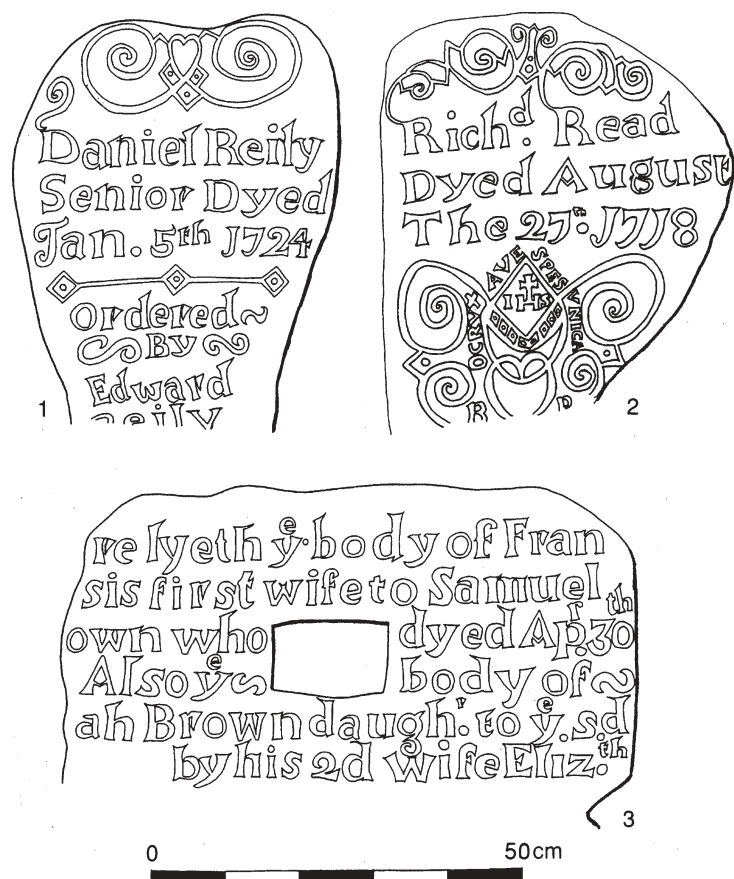 Daniel Reily
Senior Dyed
Jan. 5th 1724
Ordered~
By
Edward
Reily
1
Richd. Read
Dyed August
The 27th: 1718
AVE SPES
OCRUX UNICA
IHS
R D
2
re lyeth ye. body of Fran
sis first wife to Samuel
own who dyed Apr. 30th
Also ye body of~
ah Brown daughr. to ye. s.d
by his 2d wife Eliz.th
3
0 50cm